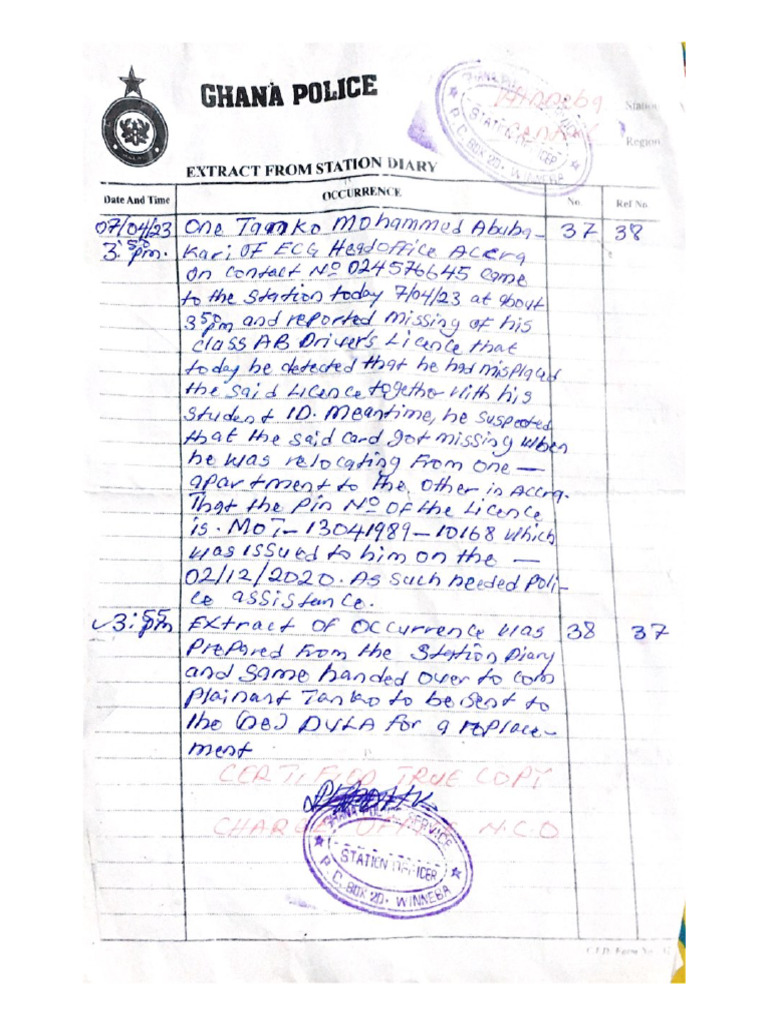 GHANA POLICE
Station
Region
GHANA POLICE
STATION OFFICER
P. O. BOX 20, WINNEBA
EXTRACT FROM STATION DIARY
Date And Time OCCURRENCE No. Ref No.
07/04/23 One Tamko Mohammed Abuba- 37 38
3:50 pm. Kari of ECG Headoffice Accra
on contact No 024576645 came
to the station today 7/04/23 at about
350pm and reported missing of his
class AB Driver's Licence that
today he detected that he had misplaced
the said Licence together with his
student ID. Meantime, he suspected
that the said card got missing when
he was relocating from one —
apartment to the other in Accra.
That the Pin No of the Licence
is. MOT-13041989-10168 which
was issued to him on the —
02/12/2020. As such needed Poli-
ce assistance.
3:55 pm Extract of Occurrence was 38 37
Prepared from the Station Diary
and same handed over to com
plainant Tanko to be sent to
the (De) DVLA for a replace-
ment
CERTIFIED TRUE COPY
CHARGE OFFICE N.C.O
GHANA POLICE SERVICE
STATION OFFICER
P. O. BOX 20, WINNEBA